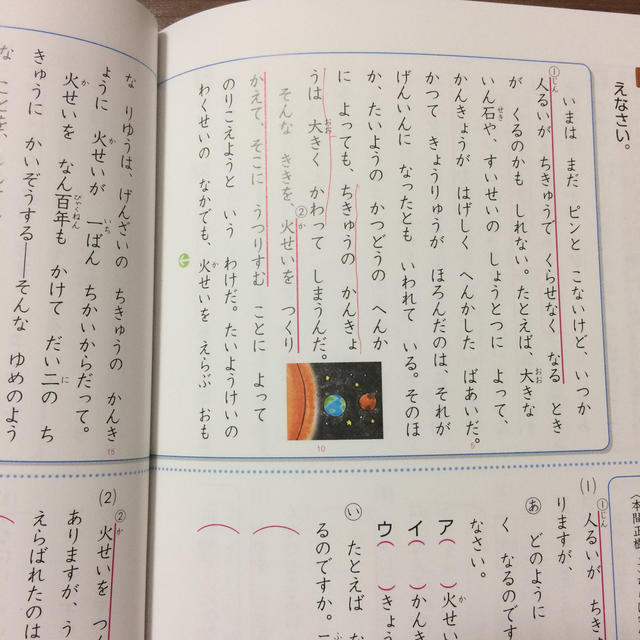 えなさい。
いまは まだ ピンと こないけど、いつか
①人るいが ちきゅうで くらせなく なる とき
が くるのかも しれない。たとえば、大きな
いん石や、すいせいの しょうとつに よって、
かんきょうが はげしく へんかした ばあいだ。
かつて きょうりゅうが ほろんだのは、それが
げんいんに なったとも いわれて いる。そのほ
か、たいようの かつどうの へんか
に よっても、ちきゅうの かんきょ
うは 大きく かわって しまうんだ。
そんな ききを、②火せいを つくり
かえて、そこに うつりすむ ことに よって
のりこえようと いう わけだ。たいようけいの
わくせいの なかでも、火せいを えらぶ おも
な りゆうは、げんざいの ちきゅうの かんき
ように 火せいが 一ばん ちかいからだって。
火せいを なん百年も かけて だい二の ち
きゅうに かいぞうする――そんな ゆめのよう
5
10
15
(1) ①人るいが ちき
りますが、
あ どのように
く なるのです
なさい。
ア( )火せい
イ( )かんき
ウ( )きょう
い たとえば な
るのですか。二
(2) ②火せいを つく
ありますが、う
えらばれたのは